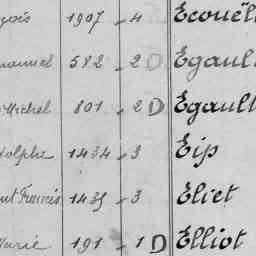 çois 1907 - 4 Ecouël
manuel 582 - 2 D Egault
Michel 801 - 2 D Egault
dolphe 1434 - 3 Eip
nt Francis 1435 - 3 Eliet
Marie 191 - 1 D Elliot